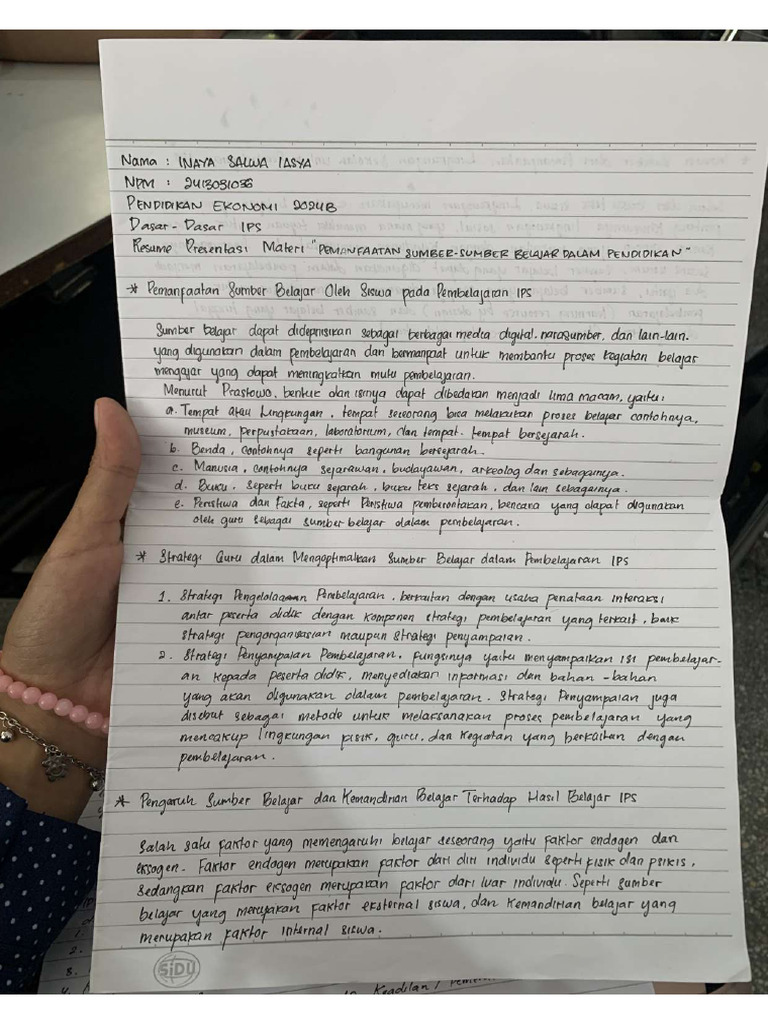 Nama : INAYA SALWA IASYA
NPM : 2413031036
PENDIDIKAN EKONOMI 2024B
Dasar-Dasar IPS
Resume Presentasi Materi "PEMANFAATAN SUMBER-SUMBER BELAJAR DALAM PENDIDIKAN"
* Pemanfaatan Sumber Belajar Oleh Siswa pada Pembelajaran IPS
Sumber belajar dapat didepinisikan sebagai berbagai media digital, narasumber, dan lain-lain.
yang digunakan dalam pembelajaran dan bermanpaat untuk membantu proses kegiatan belajar
mengajar yang dapat meningkatkan mutu pembelajaran.
Menurut Prastowo, bentuk dan isinya dapat dibedakan menjadi lima macam, yaitu:
a. Tempat atau Lingkungan, tempat seseorang bisa melakukan proses belajar contohnya,
museum, perpustakaan, laboratorium, dan tempat-tempat bersejarah.
b. Benda, contohnya seperti bangunan bersejarah.
c. Manusia, contohnya sejarawan, budayawan, arkeolog dan sebagainya.
d. Buku, seperti buku sejarah, buku teks sejarah, dan lain sebagainya.
e. Peristiwa dan Fakta, seperti Peristiwa pemberontakan, bencana yang dapat digunakan
oleh guru sebagai sumber belajar dalam pembelajaran.
* Strategi Guru dalam Mengoptimalkan Sumber Belajar dalam Pembelajaran IPS
1. Strategi Pengelolaan Pembelajaran, berkaitan dengan usaha penataan interaksi
antar peserta didik dengan komponen strategi pembelajaran yang terkait, baik
strategi pengorganisasian maupun strategi penyampaian.
2. Strategi Penyampaian Pembelajaran, fungsinya yaitu menyampaikan isi pembelajar-
an kepada peserta didik, menyediakan informasi dan bahan-bahan
yang akan digunakan dalam pembelajaran. Strategi Penyampaian juga
disebut sebagai metode untuk melaksanakan proses pembelajaran yang
mencakup lingkungan fisik, guru, dan kegiatan yang berkaitan dengan
pembelajaran.
* Pengaruh Sumber Belajar dan Kemandirian Belajar Terhadap Hasil Belajar IPS
Salah satu faktor yang memengaruhi belajar seseorang yaitu faktor endogen dan
eksogen. Faktor endogen merupakan faktor dari diri individu seperti fisik dan psikis,
sedangkan faktor eksogen merupakan faktor dari luar individu. Seperti sumber
belajar yang merupakan faktor eksternal siswa, dan kemandirian belajar yang
merupakan faktor internal siswa.
SiDU
Keadilan